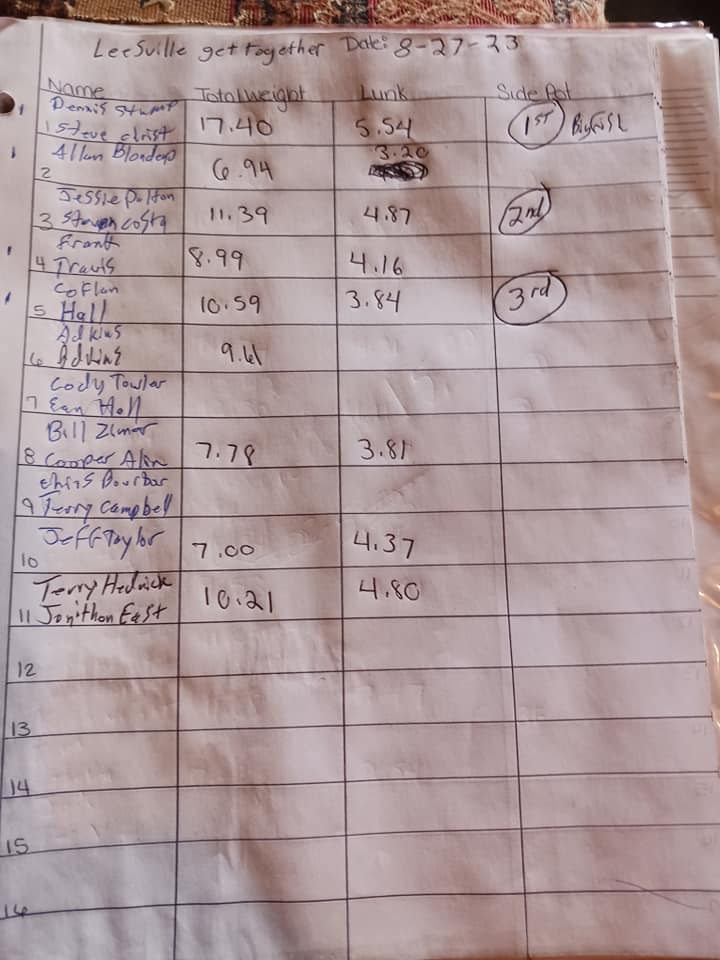 LeeSville get together Date: 8-27-23
Name Total weight Lunk Side Pot
Dennis Stump
1 Steve christ 17.40 5.54 1ST Bigfish
Allan
2 6.94 3.20
Jessie Dalton
3 Steven costa 11.39 4.87 2nd
Frank
4 Travis 8.99 4.16
Coflan
5 Hall 10.59 3.84 3rd
Adkins
6 Adkins 9.61
Cody Towler
7 Ean Hall
Bill Zimar
8 Cooper Alan 7.78 3.81
chris
9 Terry Campbell
Jeff Taylor
10 7.00 4.37
Terry Hedrick
11 Jonithon East 10.21 4.80
12
13
14
15
16